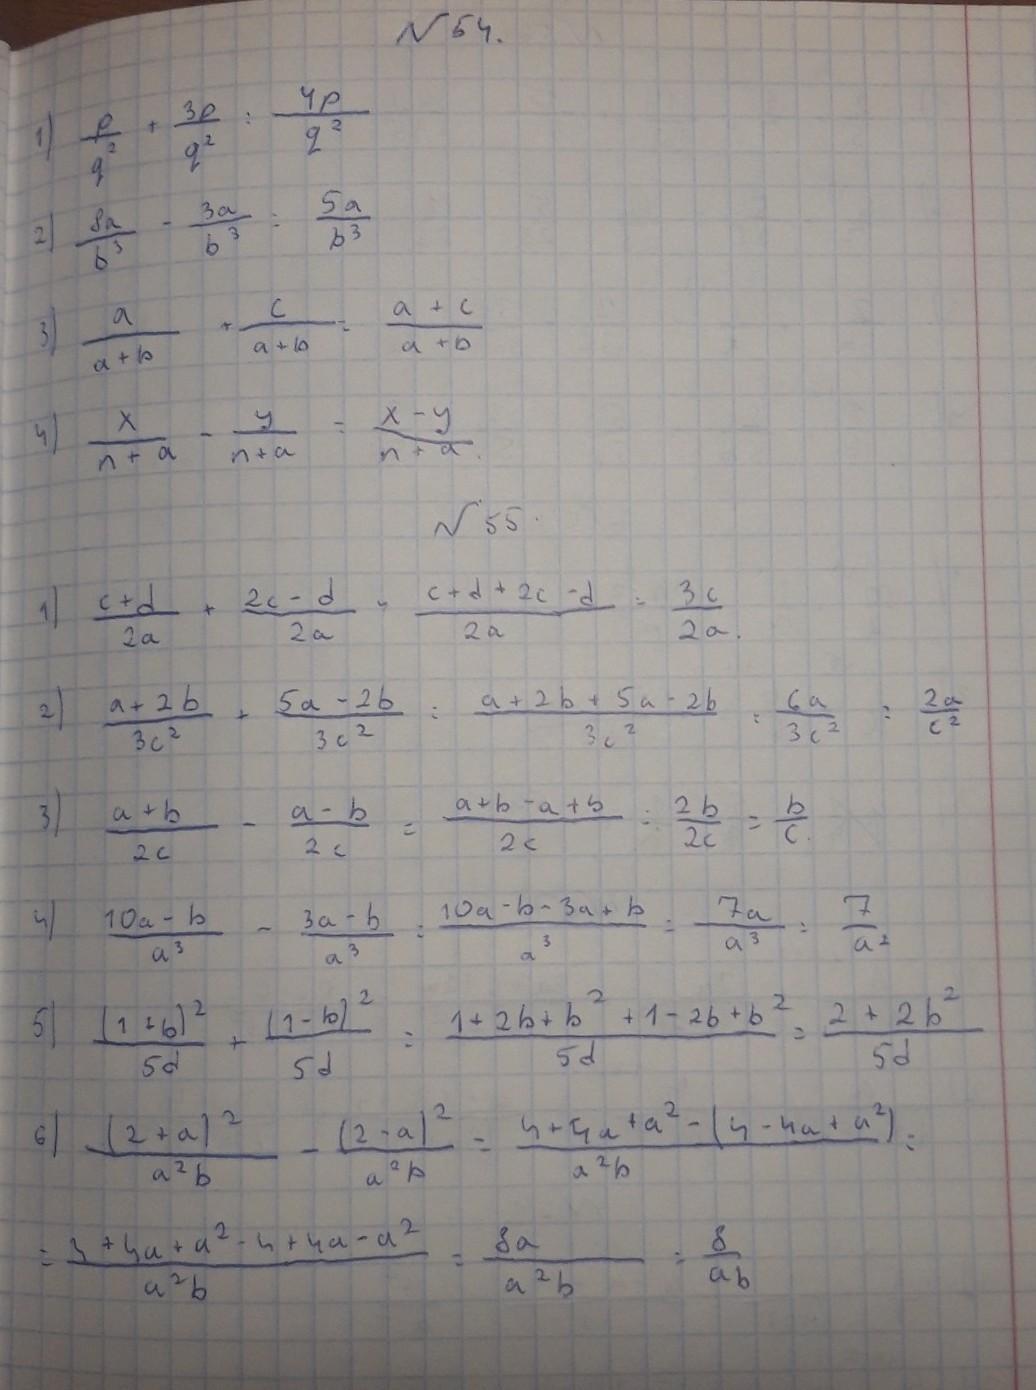 № 54.
1) p/q² + 3p/q² = 4p/q²
2) 8a/b³ - 3a/b³ = 5a/b³
3) a/(a+b) + c/(a+b) = (a+c)/(a+b)
4) x/(n+a) - y/(n+a) = (x-y)/(n+a).
№ 55.
1) (c+d)/2a + (2c-d)/2a = (c+d+2c-d)/2a = 3c/2a.
2) (a+2b)/3c² + (5a-2b)/3c² = (a+2b+5a-2b)/3c² = 6a/3c² = 2a/c²
3) (a+b)/2c - (a-b)/2c = (a+b-a+b)/2c = 2b/2c = b/c.
4) (10a-b)/a³ - (3a-b)/a³ = (10a-b-3a+b)/a³ = 7a/a³ = 7/a²
5) (1+b)²/5d + (1-b)²/5d = (1+2b+b²+1-2b+b²)/5d = (2+2b²)/5d
6) (2+a)²/a²b - (2-a)²/a²b = (4+4a+a²-(4-4a+a²))/a²b =
= (4+4a+a²-4+4a-a²)/a²b = 8a/a²b = 8/ab